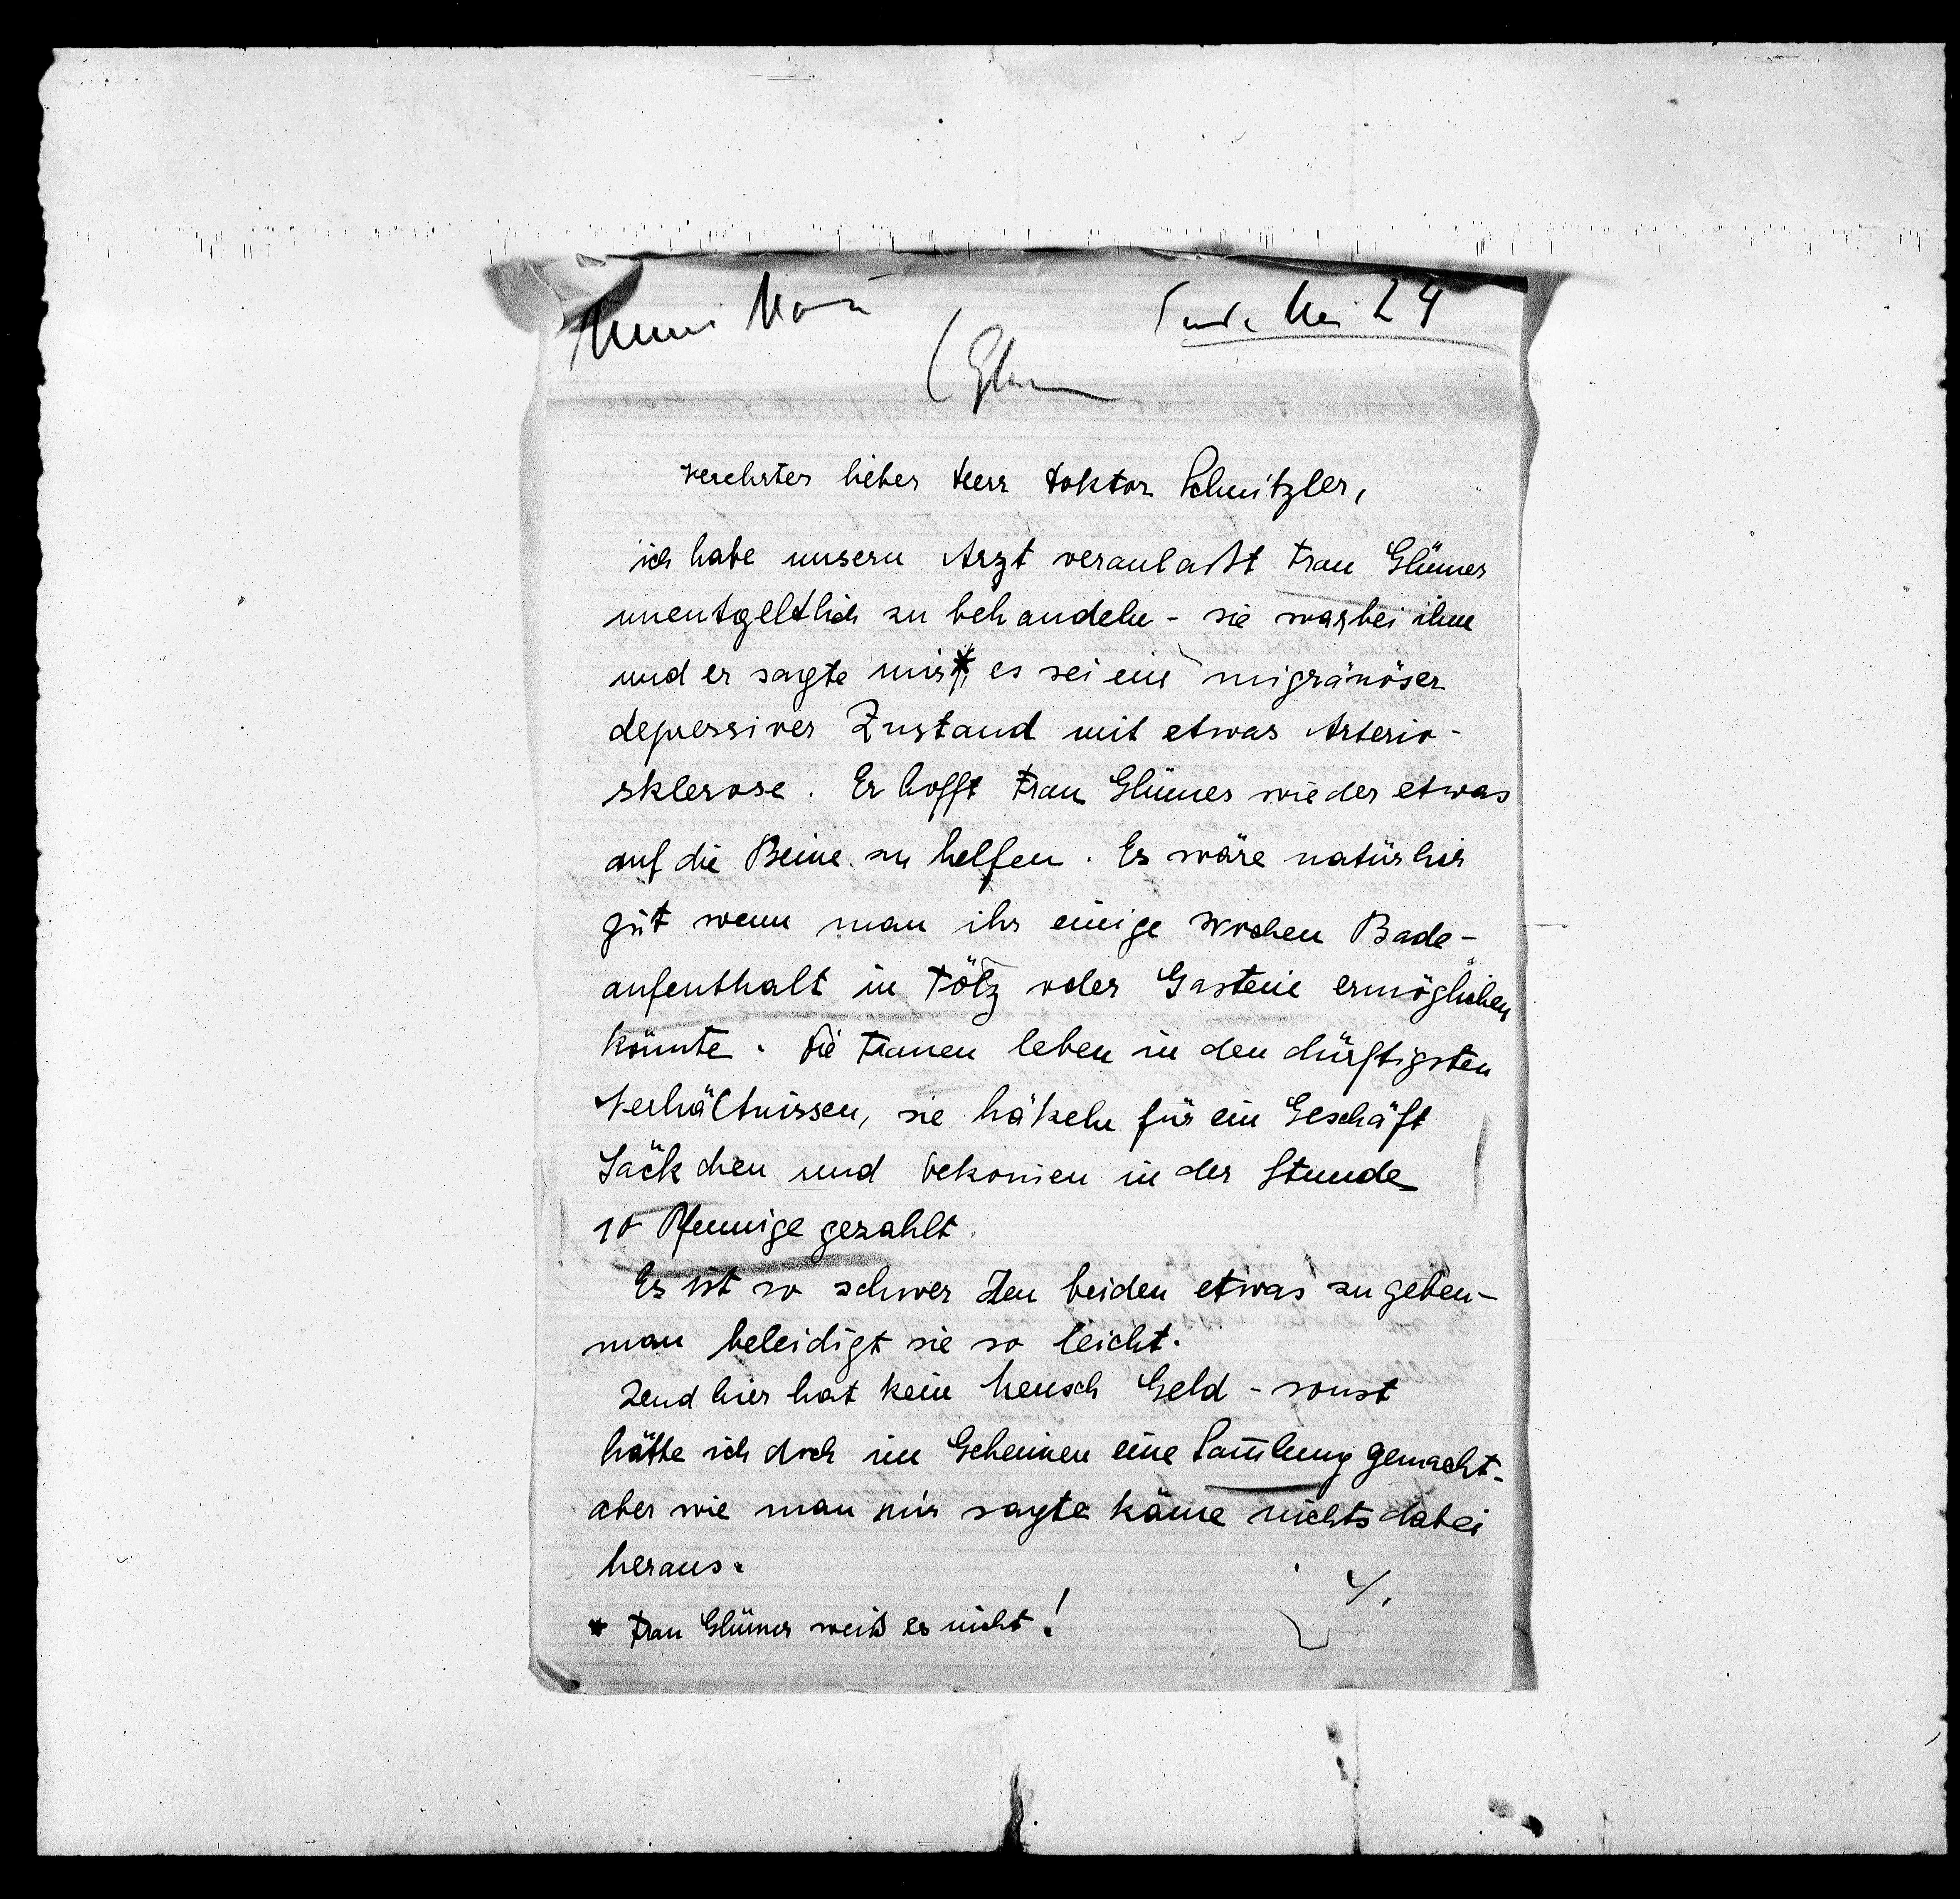 Mimi
Ende Mai 24
(Glüm
Verehrter lieber Herr Doktor Schnitzler,
ich habe unsern Arzt veranlaßt Frau Glümer
unentgeltlich zu behandeln - sie war bei ihm
und er sagte mir*, es sei ein migränöser
depressiver Zustand mit etwas Arterio-
sklerose. Er hofft Frau Glümer wieder etwas
auf die Beine zu helfen. Es wäre natürlich
gut wenn man ihr einige Wochen Bade-
aufenthalt in Tölz oder Gastein ermöglichen
könnte. Die Frauen leben in den dürftigsten
Verhältnissen, sie häkeln für ein Geschäft
Säckchen und bekom̄en in der Stunde
10 Pfennige gezahlt.
Es ist so schwer den beiden etwas zu geben-
man beleidigt sie so leicht.
Und hier hat kein Mensch Geld - sonst
hätte ich doch im Geheimen eine Sam̄lung gemacht-
aber wie man mir sagte käme nichts dabei
heraus.
* Frau Glümer weiß es nicht!